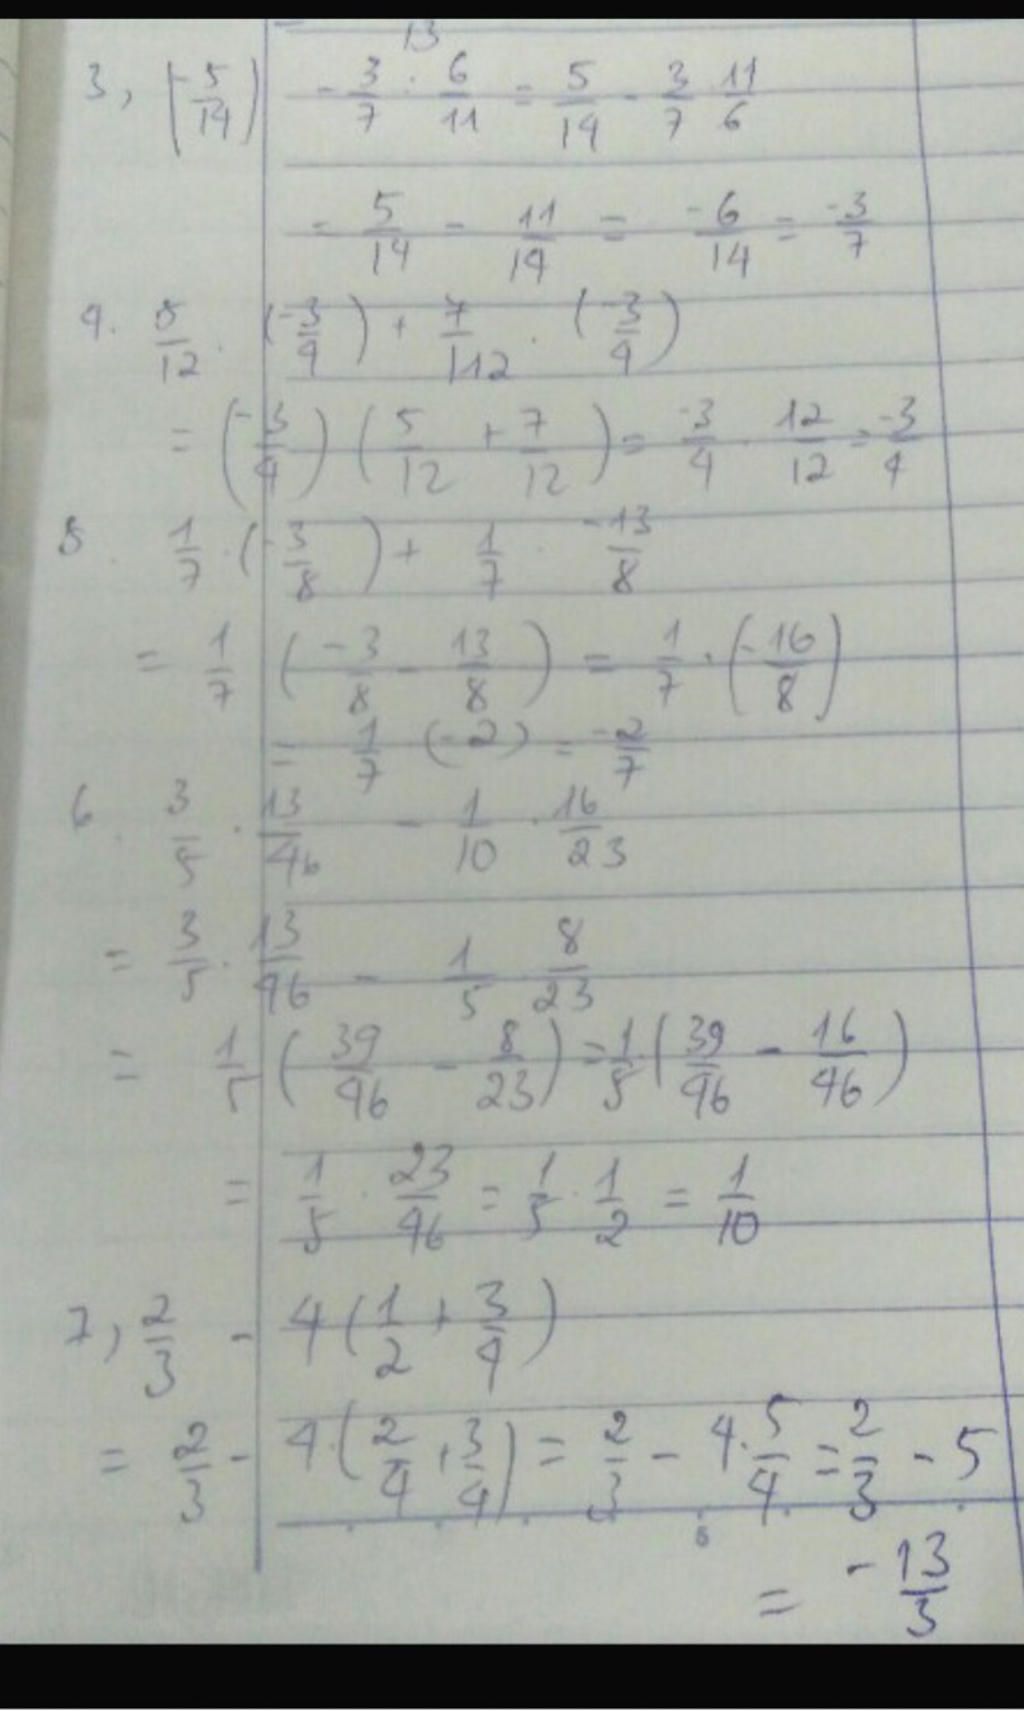 13
3, |-5/14| - 3/7 : 6/11 = 5/14 - 3/7 · 11/6
= 5/14 - 11/14 = -6/14 = -3/7
4. 5/12 · (-3/4) + 7/112 · (-3/4)
= (-3/4) (5/12 + 7/12) = -3/4 · 12/12 = -3/4
5. 1/7 · (-3/8) + 1/7 · -13/8
= 1/7 (-3/8 - 13/8) = 1/7 · (-16/8)
= 1/7 (-2) = -2/7
6. 3/5 · 13/46 - 1/10 · 16/23
= 3/5 · 13/46 - 1/5 8/23
= 1/5 (39/46 - 8/23) = 1/5 · (39/46 - 16/46)
= 1/5 · 23/46 = 1/5 · 1/2 = 1/10
7, 2/3 - 4 (1/2 + 3/4)
= 2/3 - 4 · (2/4 + 3/4) = 2/3 - 4 · 5/4 = 2/3 - 5
= -13/3